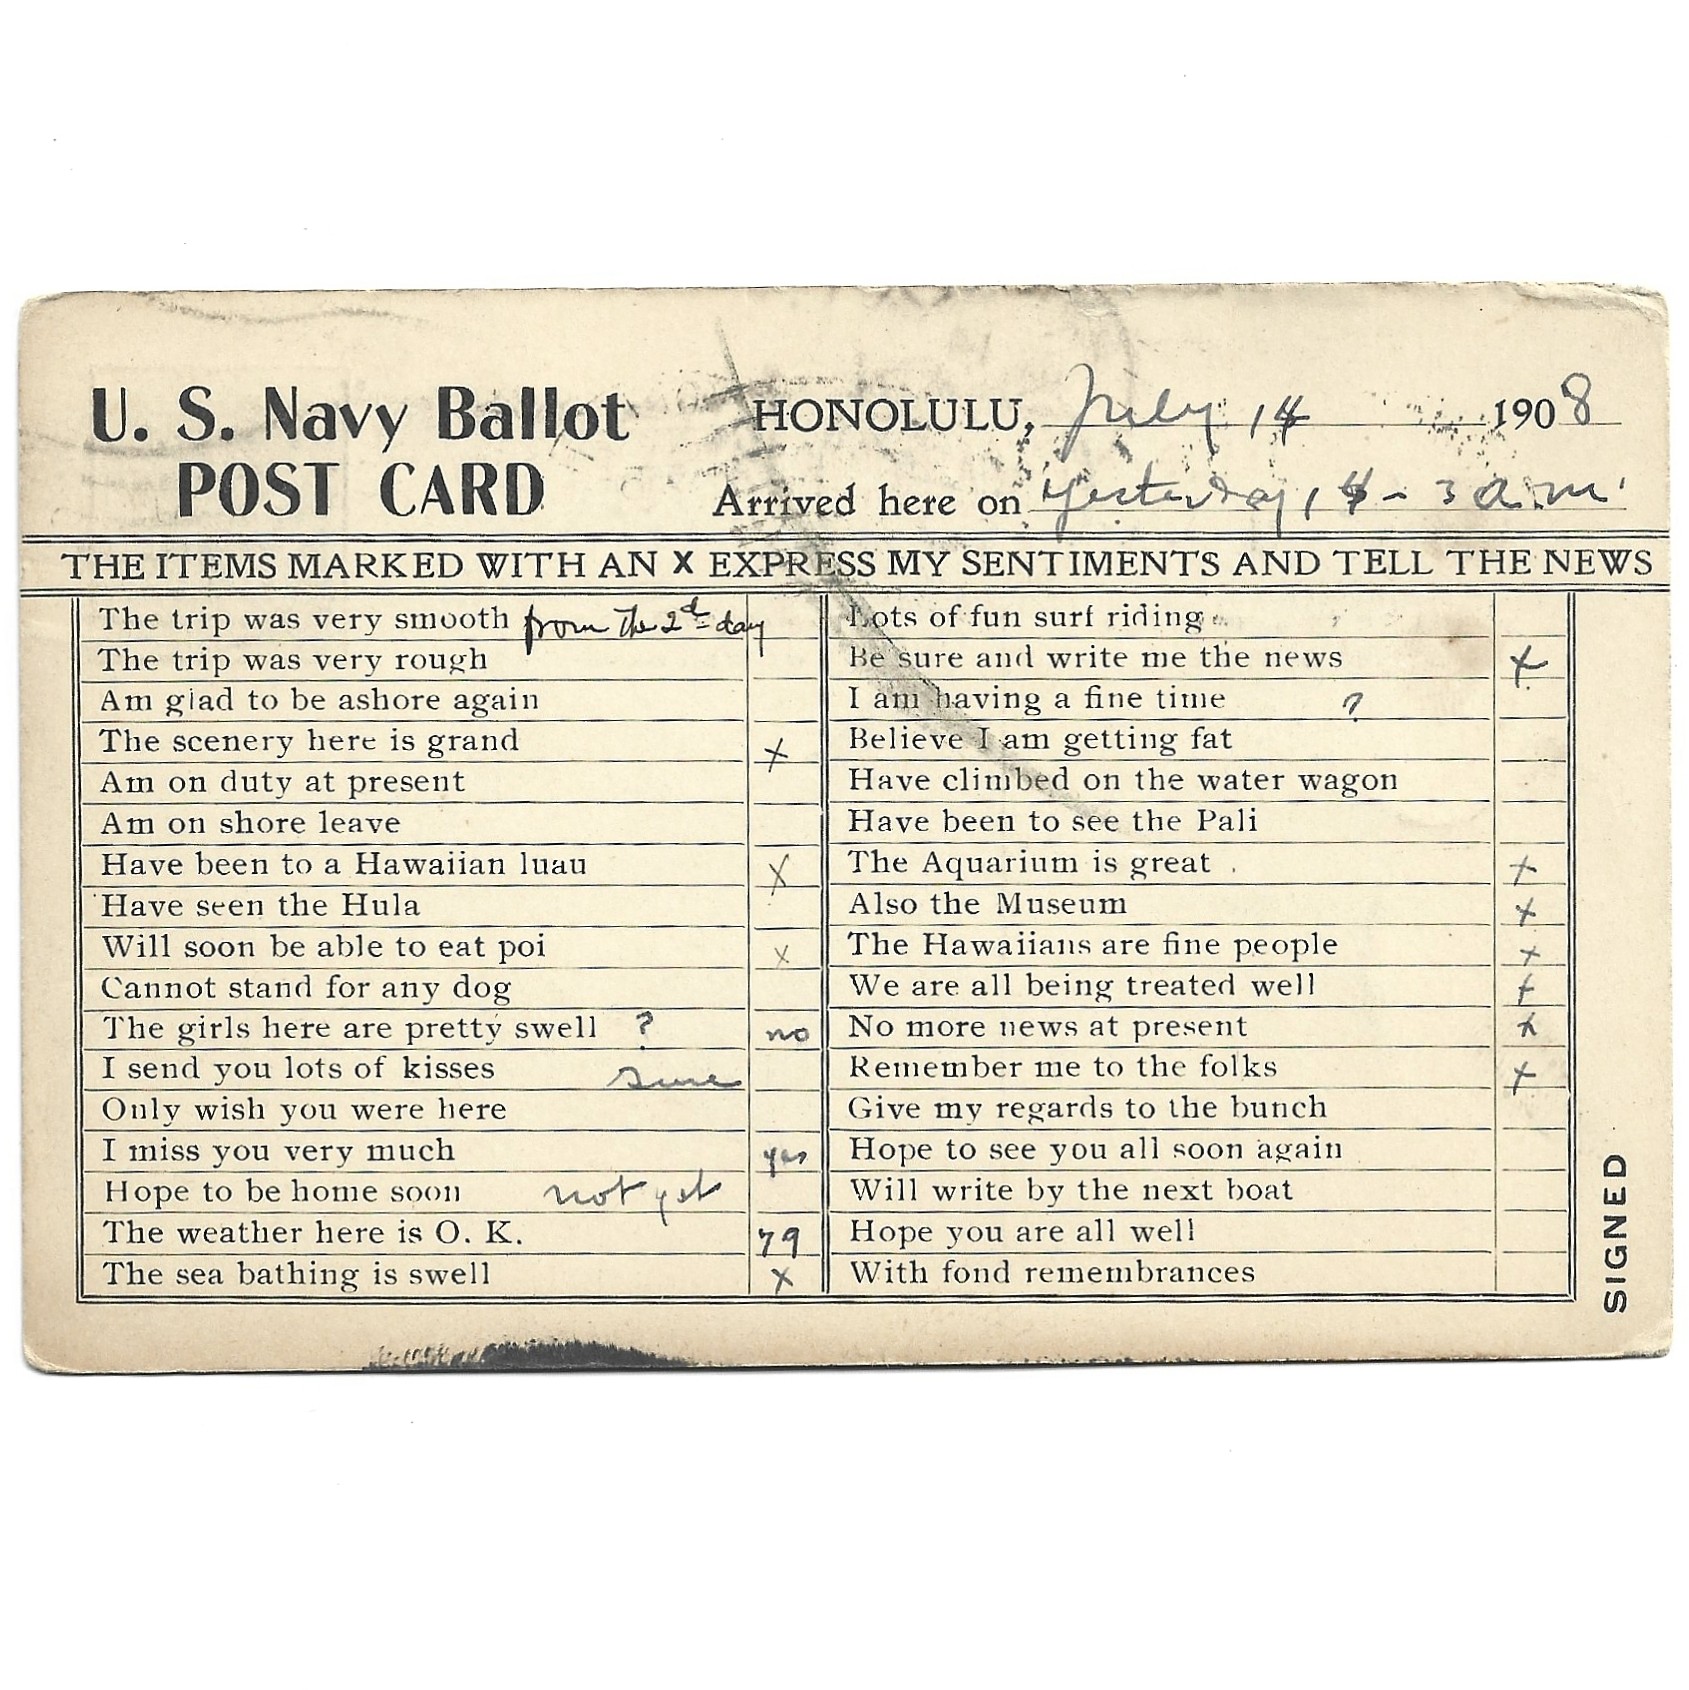 U. S. Navy Ballot
POST CARD
HONOLULU, July 14 1908
Arrived here on Yesterday - 3 a.m.
THE ITEMS MARKED WITH AN X EXPRESS MY SENTIMENTS AND TELL THE NEWS
The trip was very smooth from The 2d day
The trip was very rough
Am glad to be ashore again
The scenery here is grand x
Am on duty at present
Am on shore leave
Have been to a Hawaiian luau x
Have seen the Hula
Will soon be able to eat poi x
Cannot stand for any dog
The girls here are pretty swell ? no
I send you lots of kisses sure
Only wish you were here
I miss you very much yes
Hope to be home soon not yet
The weather here is O. K. 79
The sea bathing is swell x
Lots of fun surf riding
Be sure and write me the news x
I am having a fine time ?
Believe I am getting fat
Have climbed on the water wagon
Have been to see the Pali
The Aquarium is great x
Also the Museum x
The Hawaiians are fine people x
We are all being treated well x
No more news at present x
Remember me to the folks x
Give my regards to the bunch
Hope to see you all soon again
Will write by the next boat
Hope you are all well
With fond remembrances
SIGNED